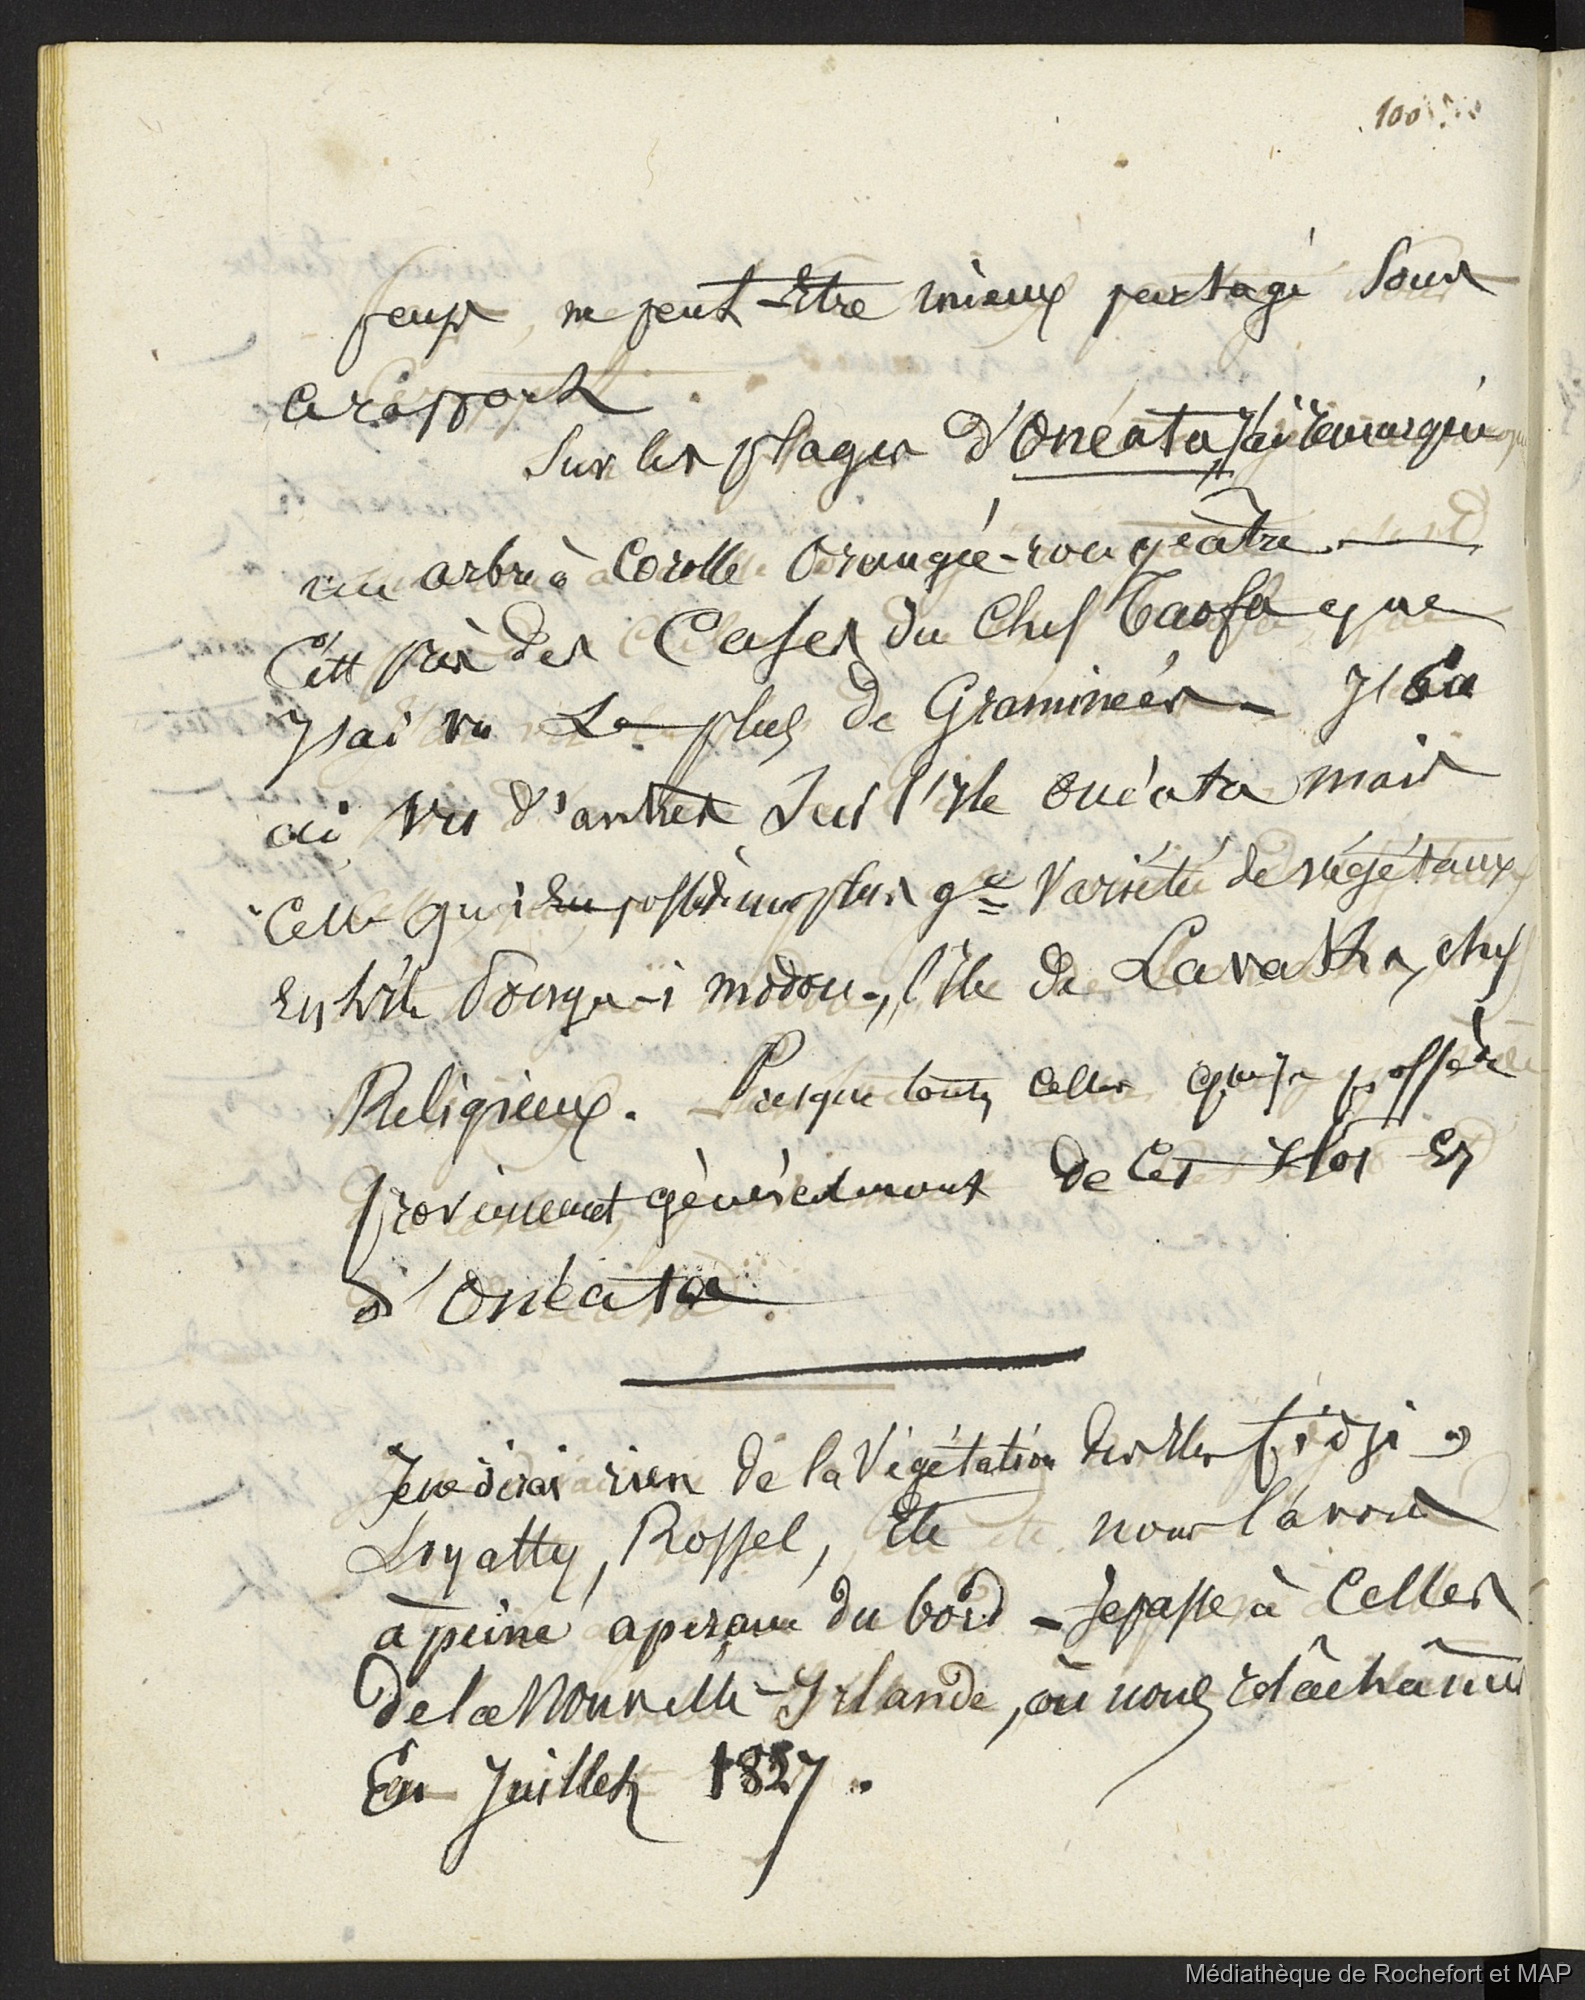 100
pays, ne peut-être mieux partagé sous
ce rapport.
Sur les plages d'Onéata, J'ai remarqué
un arbre à Corolle Orangée-rougeâtre.
C'ett près des Cases du Chef Taofa que
J'ai vu Le plus de Graminées - J'en
ai vu d'autres sur l'Ile onéata mais
Celle qui En possède une plus gde Variété de végétaux
Est l'île Pourqu-i modou, l'île de Lavatha, chef
Religieux. Presque toutes celles que je possède
proviennent, généralement de Ces Ilos Et
d'Onéata.
Je ne dirai rien de la Végétation des Iles fidji,
Loyatty, Rossel, Ele nous l'avons
à peine aperçue du bord - Je passe à Celles
de la Nouvelle-Irlande, où nous relâchâmes
En Juillet 1827.
Médiathèque de Rochefort et MAP